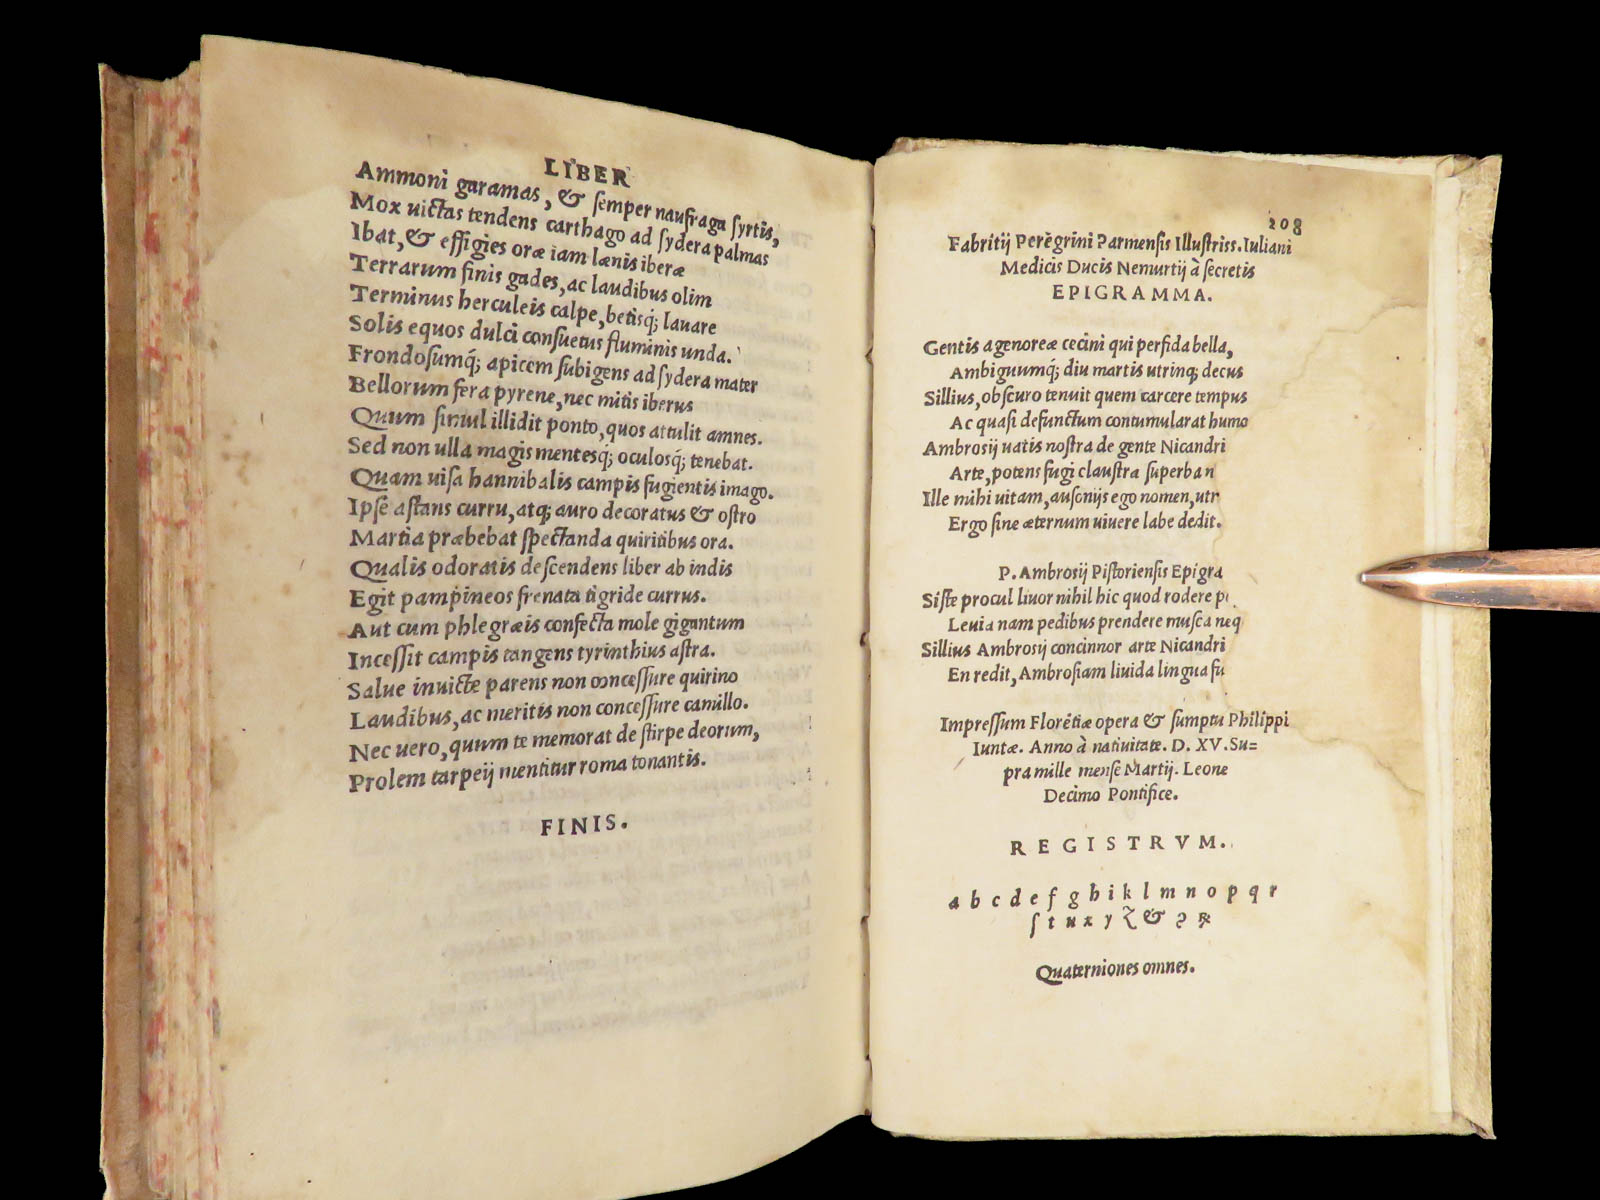 LIBER
Ammoni garamas, & semper naufraga syrtis,
Mox uictas tendens carthago ad sydera palmas
Ibat, & effigies oræ iam lænis iberæ
Terrarum finis gades, ac laudibus olim
Terminus herculeis calpe, betisq́; lauare
Solis equos dulci consuetus fluminis unda.
Frondosumq́; apicem subigens ad sydera mater
Bellorum fera pyrene, nec mitis iberus
Quum simul illidit ponto, quos attulit amnes.
Sed non ulla magis mentesq́; oculosq́; tenebat.
Quam uisa hannibalis campis fugientis imago.
Ipse astans curru, atq; auro decoratus & ostro
Martia præbebat spectanda quiritibus ora.
Qualis odoratis descendens liber ab indis
Egit pampineos frenata tigride currus.
Aut cum phlegræis confecta mole gigantum
Incessit campis tangens tyrinthius astra.
Salue inuicte parens non concessure quirino
Laudibus, ac meritis non concessure camillo.
Nec uero, quum te memorat de stirpe deorum,
Prolem tarpeij mentitur roma tonantis.
FINIS.
208
Fabritij Peregrini Parmensis Illustriss. Iuliani
Medicis Ducis Nemurtij à secretis
EPIGRAMMA.
Gentis agenoreæ cecini qui perfida bella,
Ambiguumq́; diu martis utrinq; decus
Sillius, obscuro tenuit quem carcere tempus
Ac quasi defunctum contumularat humo
Ambrosij uatis nostra de gente Nicandri
Arte, potens fugi claustra superban
Ille mihi uitam, ausonijs ego nomen, utr
Ergo sine æternum uiuere labe dedit.
P. Ambrosij Pistoriensis Epigra
Siste procul liuor nihil hic quod rodere p
Leuia nam pedibus prendere musca neq
Sillius Ambrosij concinnor arte Nicandri
En redit, Ambrosiam liuida lingua fu
Impressum Florētiæ opera & sumptu Philippi
Iuntæ. Anno à natiuitate. D. XV. Su=
pra mille mense Martij. Leone
Decimo Pontifice.
REGISTRVM.
a b c d e f g h i k l m n o p q r
ſ t u x y z & ꝯ ꝶ
Quaterniones omnes.